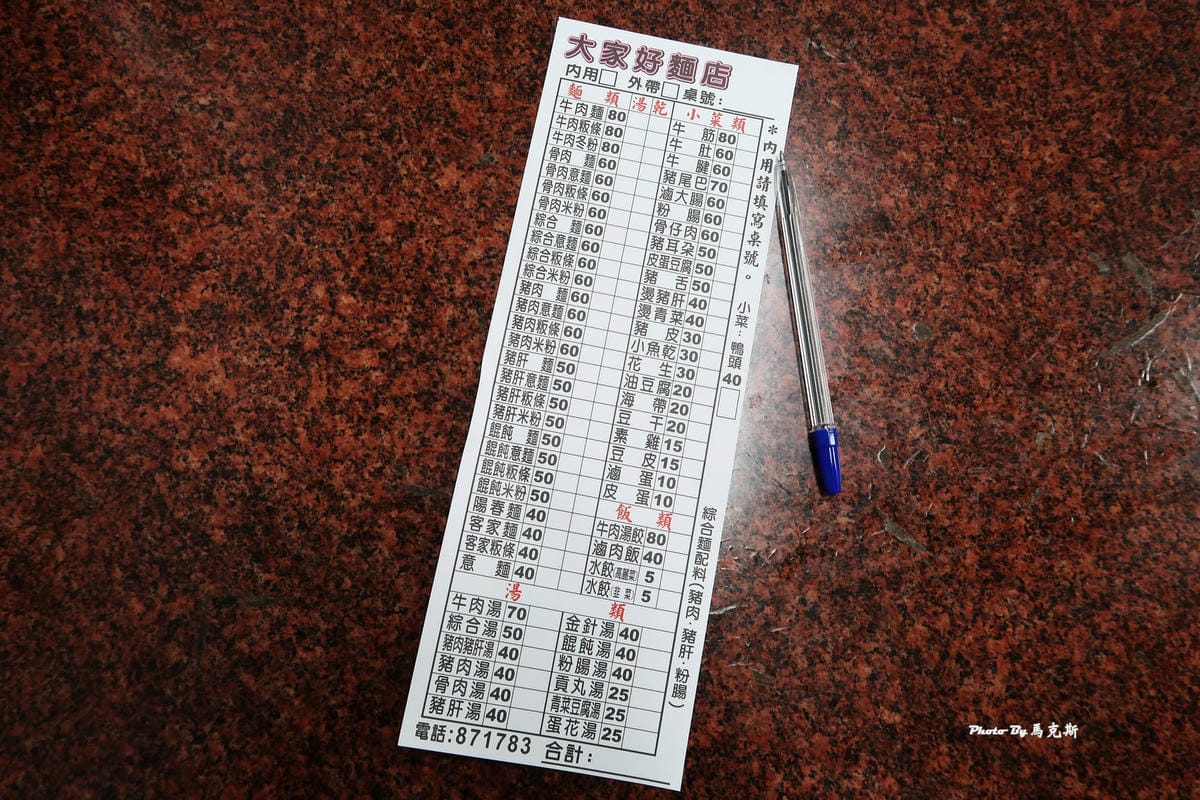 大家好麵店
內用□ 外帶□ 桌號：
麵類 湯 乾
牛肉麵 80
牛肉粄條 80
牛肉冬粉 80
骨肉麵 60
骨肉意麵 60
骨肉粄條 60
骨肉米粉 60
綜合麵 60
綜合意麵 60
綜合粄條 60
綜合米粉 60
豬肉麵 60
豬肉意麵 60
豬肉粄條 60
豬肉米粉 60
豬肝麵 50
豬肝意麵 50
豬肝粄條 50
豬肝米粉 50
餛飩麵 50
餛飩意麵 50
餛飩粄條 50
餛飩米粉 50
陽春麵 40
客家麵 40
客家粄條 40
意麵 40
小菜類
牛筋 80
牛肚 60
牛腱 60
豬尾巴 70
滷大腸 60
粉腸 60
骨仔肉 60
豬耳朵 50
皮蛋豆腐 50
豬舌 50
燙豬肝 40
燙青菜 40
豬皮 30
小魚乾 30
花生 30
油豆腐 20
海帶 20
豆干 20
素雞 15
豆皮 15
滷蛋 10
皮蛋 10
飯類
牛肉湯餃 80
滷肉飯 40
水餃(高麗菜) 5
水餃(韭菜) 5
湯類
牛肉湯 70
綜合湯 50
豬肉豬肝湯 40
豬肉湯 40
骨肉湯 40
豬肝湯 40
金針湯 40
餛飩湯 40
粉腸湯 40
貢丸湯 25
青菜豆腐湯 25
蛋花湯 25
電話:871783 合計：
＊內用請填寫桌號。
小菜：鴨頭 40
綜合麵配料(豬肉．豬肝．粉腸)
Photo By 馬克斯